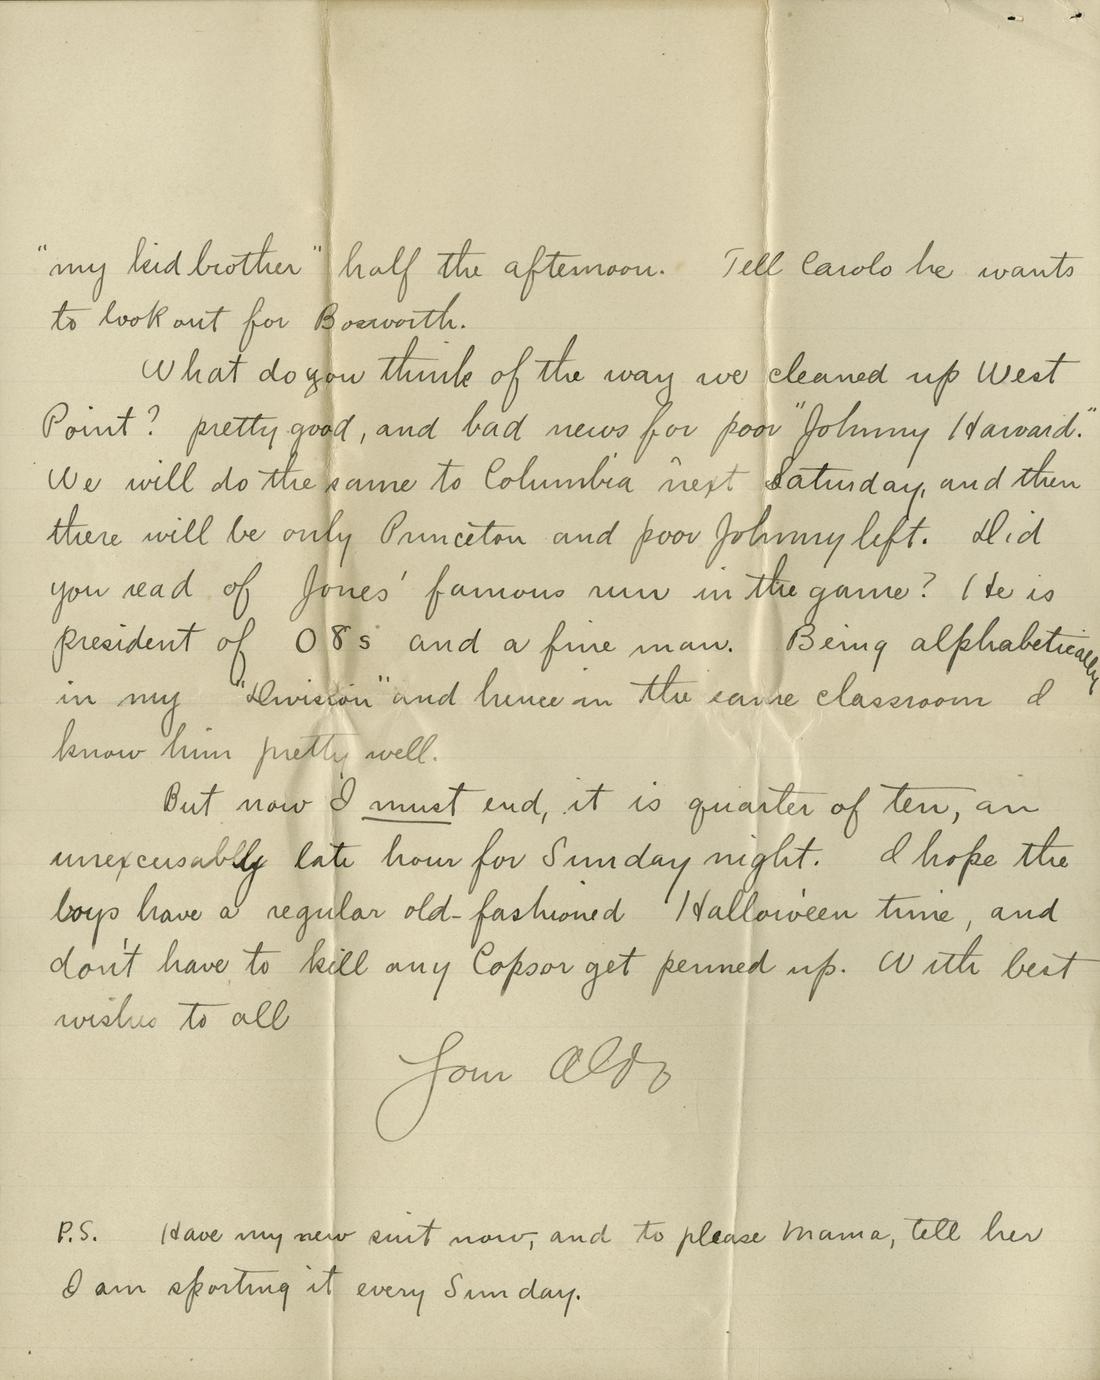 "my kid brother" half the afternoon. Tell Carolo he wants
to look out for Bosworth.
What do you think of the way we cleaned up West
Point? pretty good, and bad news for poor "Johnny Harvard."
We will do the same to Columbia next Saturday, and then
there will be only Princeton and poor Johnny left. Did
you read of Jones' famous run in the game? He is
president of 08s and a fine man. Being alphabetically
in my "Division" and hence in the same classroom I
know him pretty well.
But now I must end, it is quarter of ten, an
unexcusably late hour for Sunday night. I hope the
boys have a regular old-fashioned Hallowe'en time, and
don't have to kill any Cops or get penned up. With best
wishes to all
Your Aldo
P.S. Have my new suit now, and to please Mama, tell her
I am sporting it every Sunday.